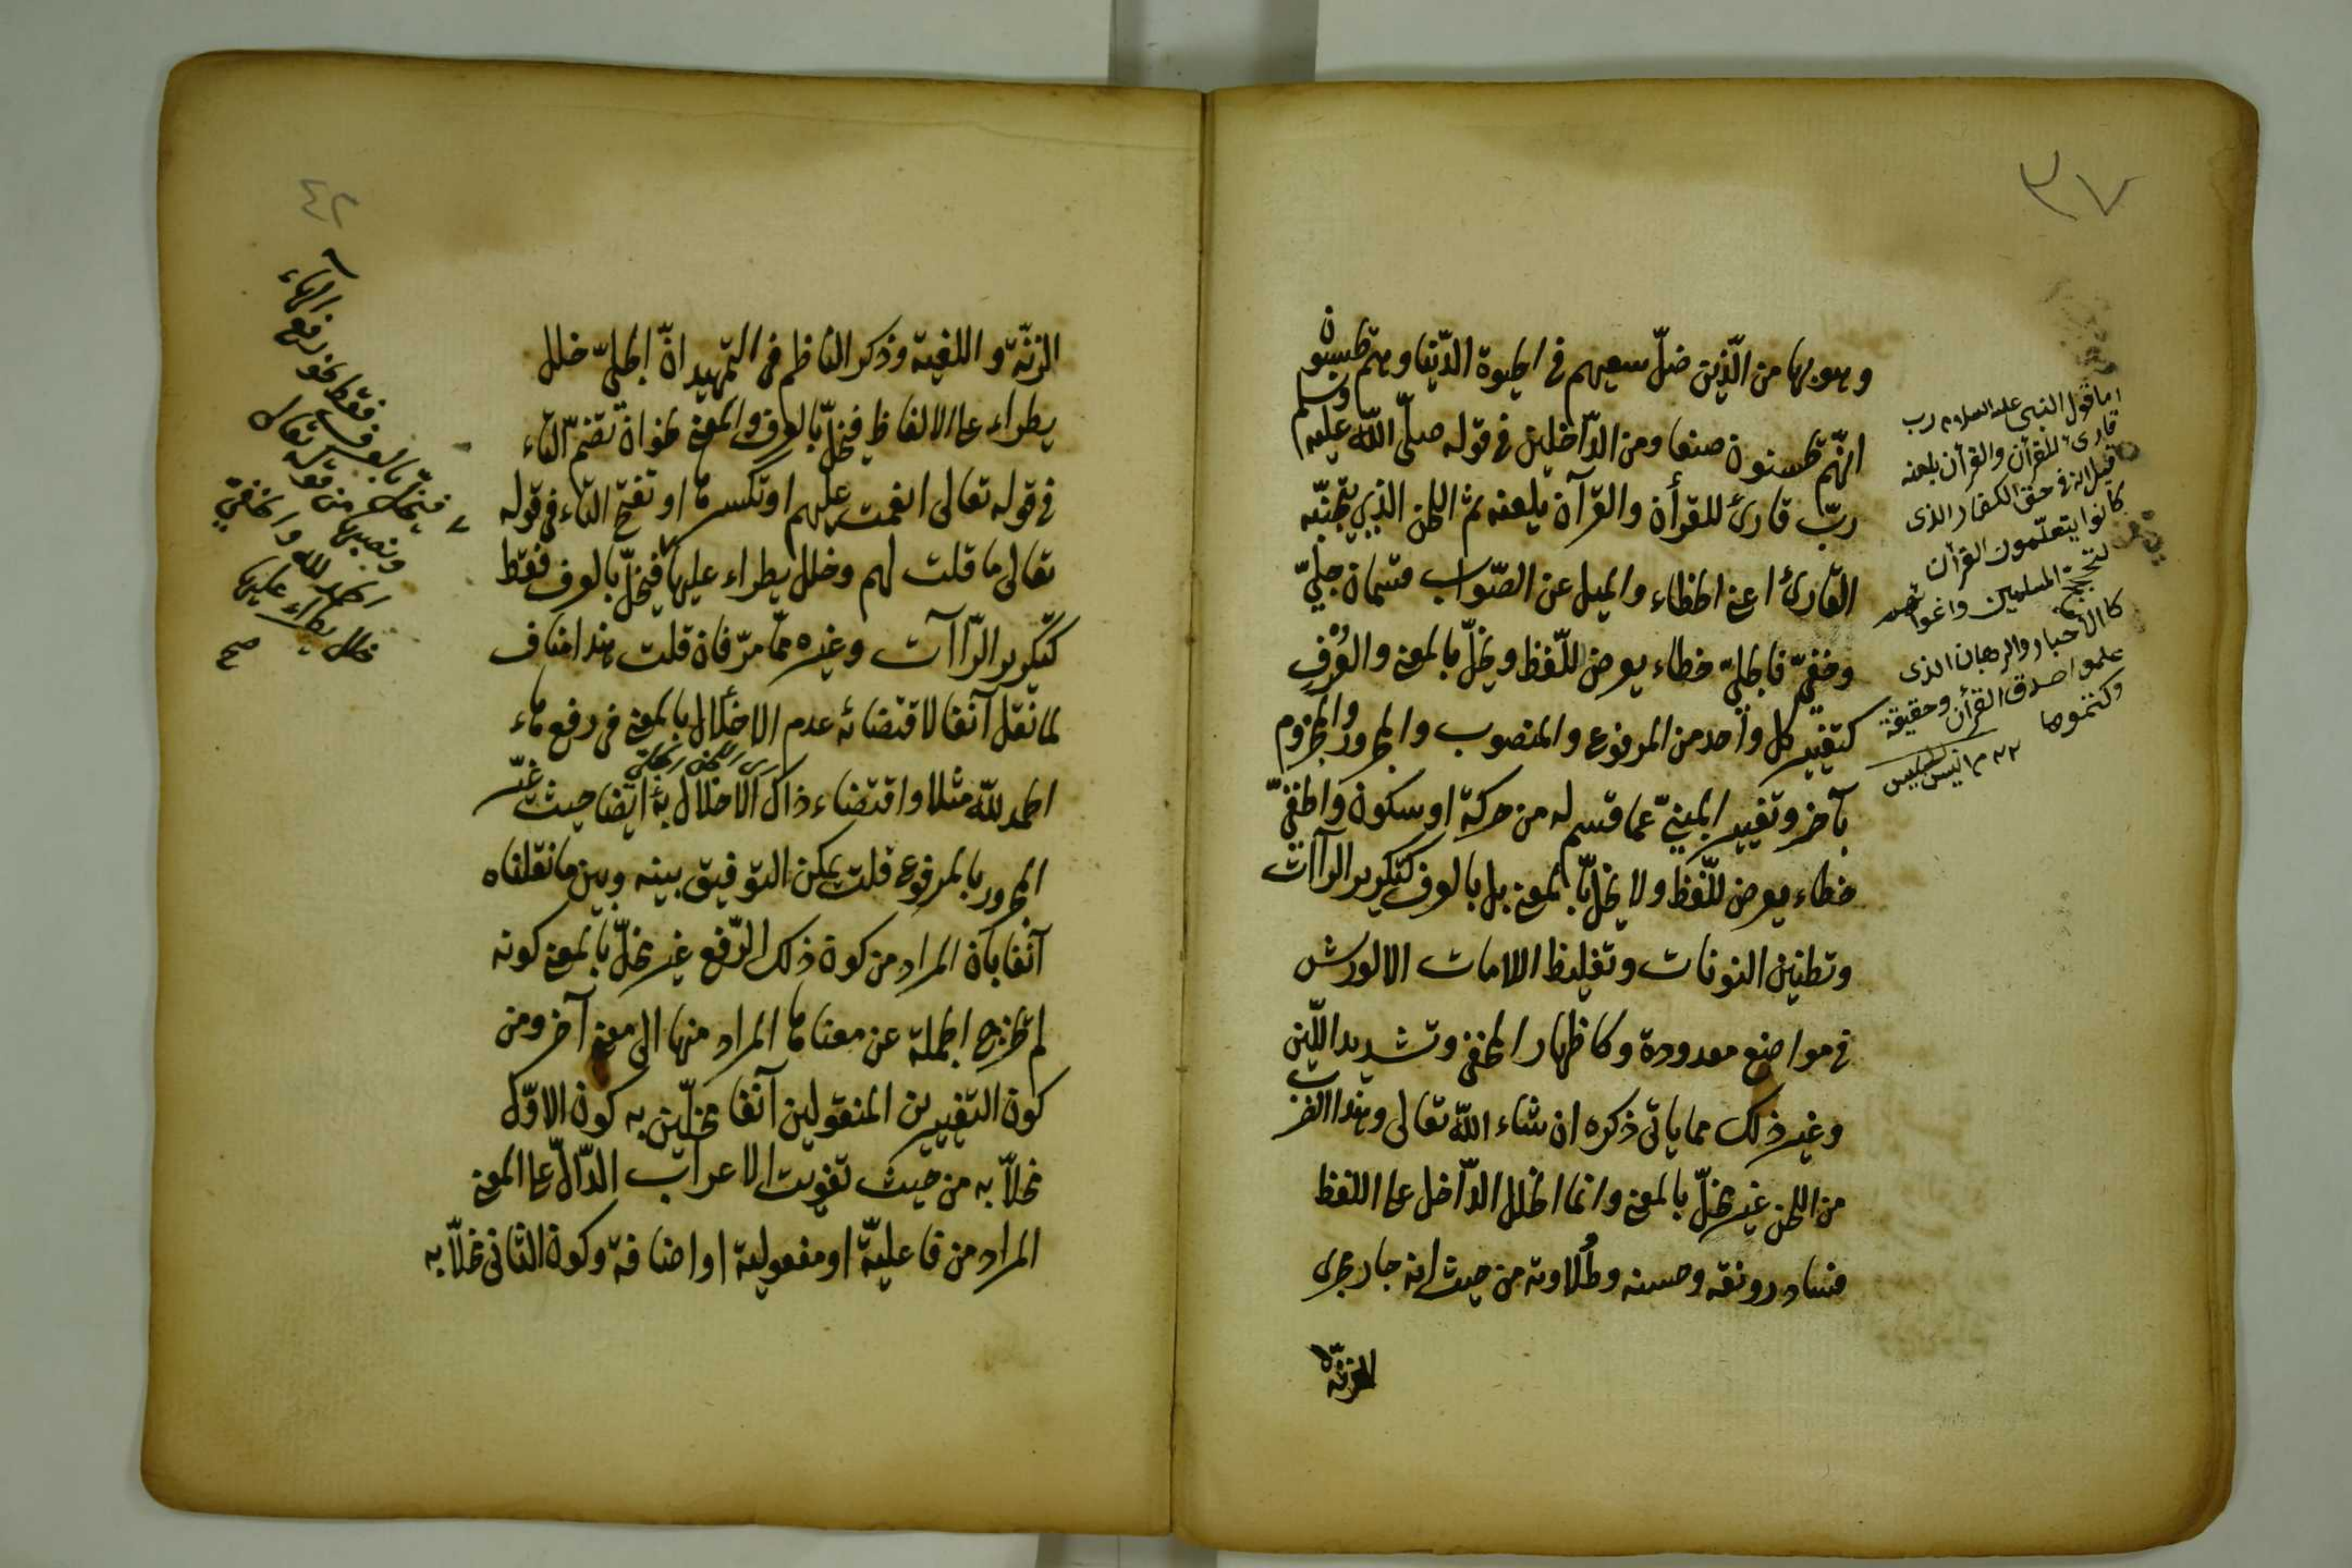 ٣٧
وهو بها من الّذين ضلّ سعيهم في الحيوة الدّنيا وهم يحسبون
انّهم يحسنون صنعا ومن الدّاخلين في قوله صلّى اللّه عليه وسلم
ربّ قارئ للقرأن والقرآن يلعنه ثم اللحن الذي يجتنبه
القارئ اعني الخطاء والميل عن الصّواب قسمان جليّ
وخفيّ فالجليّ خطاء يعرض للّفظ ويخلّ بالمعنى والعُرْف
كتغيير كل واحد من المرفوع والمنصوب والمجرور والمجزوم
بآخر وتغيير المبنيّ عما قسم له من حركة او سكون والخفيّ
خطاء يعرض للّفظ ولا يخلّ بالمعنى بل بالعرف كتكرير الرّاآت
وتطنين النونات وتغليظ اللامات الا لورش
في مواضع معدودة وكاظهار المخفى وتشديد الليّن
وغير ذلك مما يأتى ذكره ان شاء اللّه تعالى وهذا الضرب
من اللحن غير مخلّ بالمعنى وانما الخلل الدّاخل على اللفظ
فساد رونقه وحسنه وطُلاوته من حيث انه جار مجرى
الرتّة
اما قول النبى عليه السلام رب
قارئ للقرآن والقرآن يلعنه
قيل انه في حق الكفار الذى
كانوا يتعلّمون القرآن
المسلمين
كالأحبار والرهبان الذى
علموا صدق القرأن وحقيقة
وكتموها
الرتّة واللغية وذكر الناظم في التمهيد انّ الجليّ خلل
يطراء على الالفاظ فيخلّ بالعرف والمعنى نحو ان تضمّ التاء
في قوله تعالى انعمت عليهم او تكسرها او تفتح التاء في قوله
تعالى ما قلت لهم وخلل يطراء عليها فيخلّ بالعرف فقط
كتكرير الرّاآت وغيره ممّا مرّ فان قلت هذا مناف
لما نقل آنفا لاقتضائه عدم الاخلال بالمعنى في رفع هاء
الحمد للّه مثلا واقتضاء ذاك الاخلال به ايضا حيث غيّر
اى اللحن الجلى
المجرور بالمرفوع قلت يمكن التوفيق بينه وبين ما نقلناه
آنفا بأن المراد من كون ذلك الرّفع غير مخلّ بالمعنى كونه
لم تخرج الجملة عن معناها المراد منها الى معنى آخر ومن
كون التغييرين المنقولين آنفا مخلّين به كون الاوّل
مخلاّ به من حيث تفويت الاعراب الدّالّ على المعنى
المراد من فاعليّة او مفعولية او اضافة وكون الثانى مخلاّ به
فيخلّ بالعرف
فقط نحو رفع الهاء
ونصبها من قوله تعالى
الحمد لله والخفيّ
خلل يطراء عليها
صح